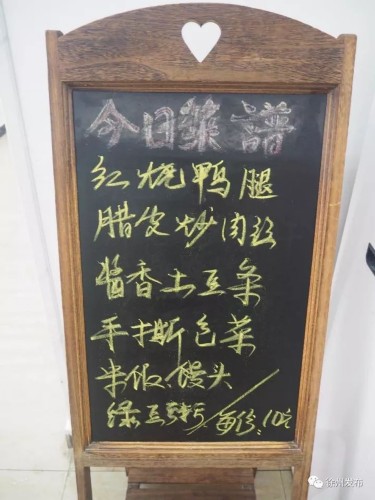 今日菜谱
红烧鸭腿
腊皮炒肉丝
酱香土豆条
手撕包菜
米饭、馒头
绿豆粥/每位:10元
沧州发布